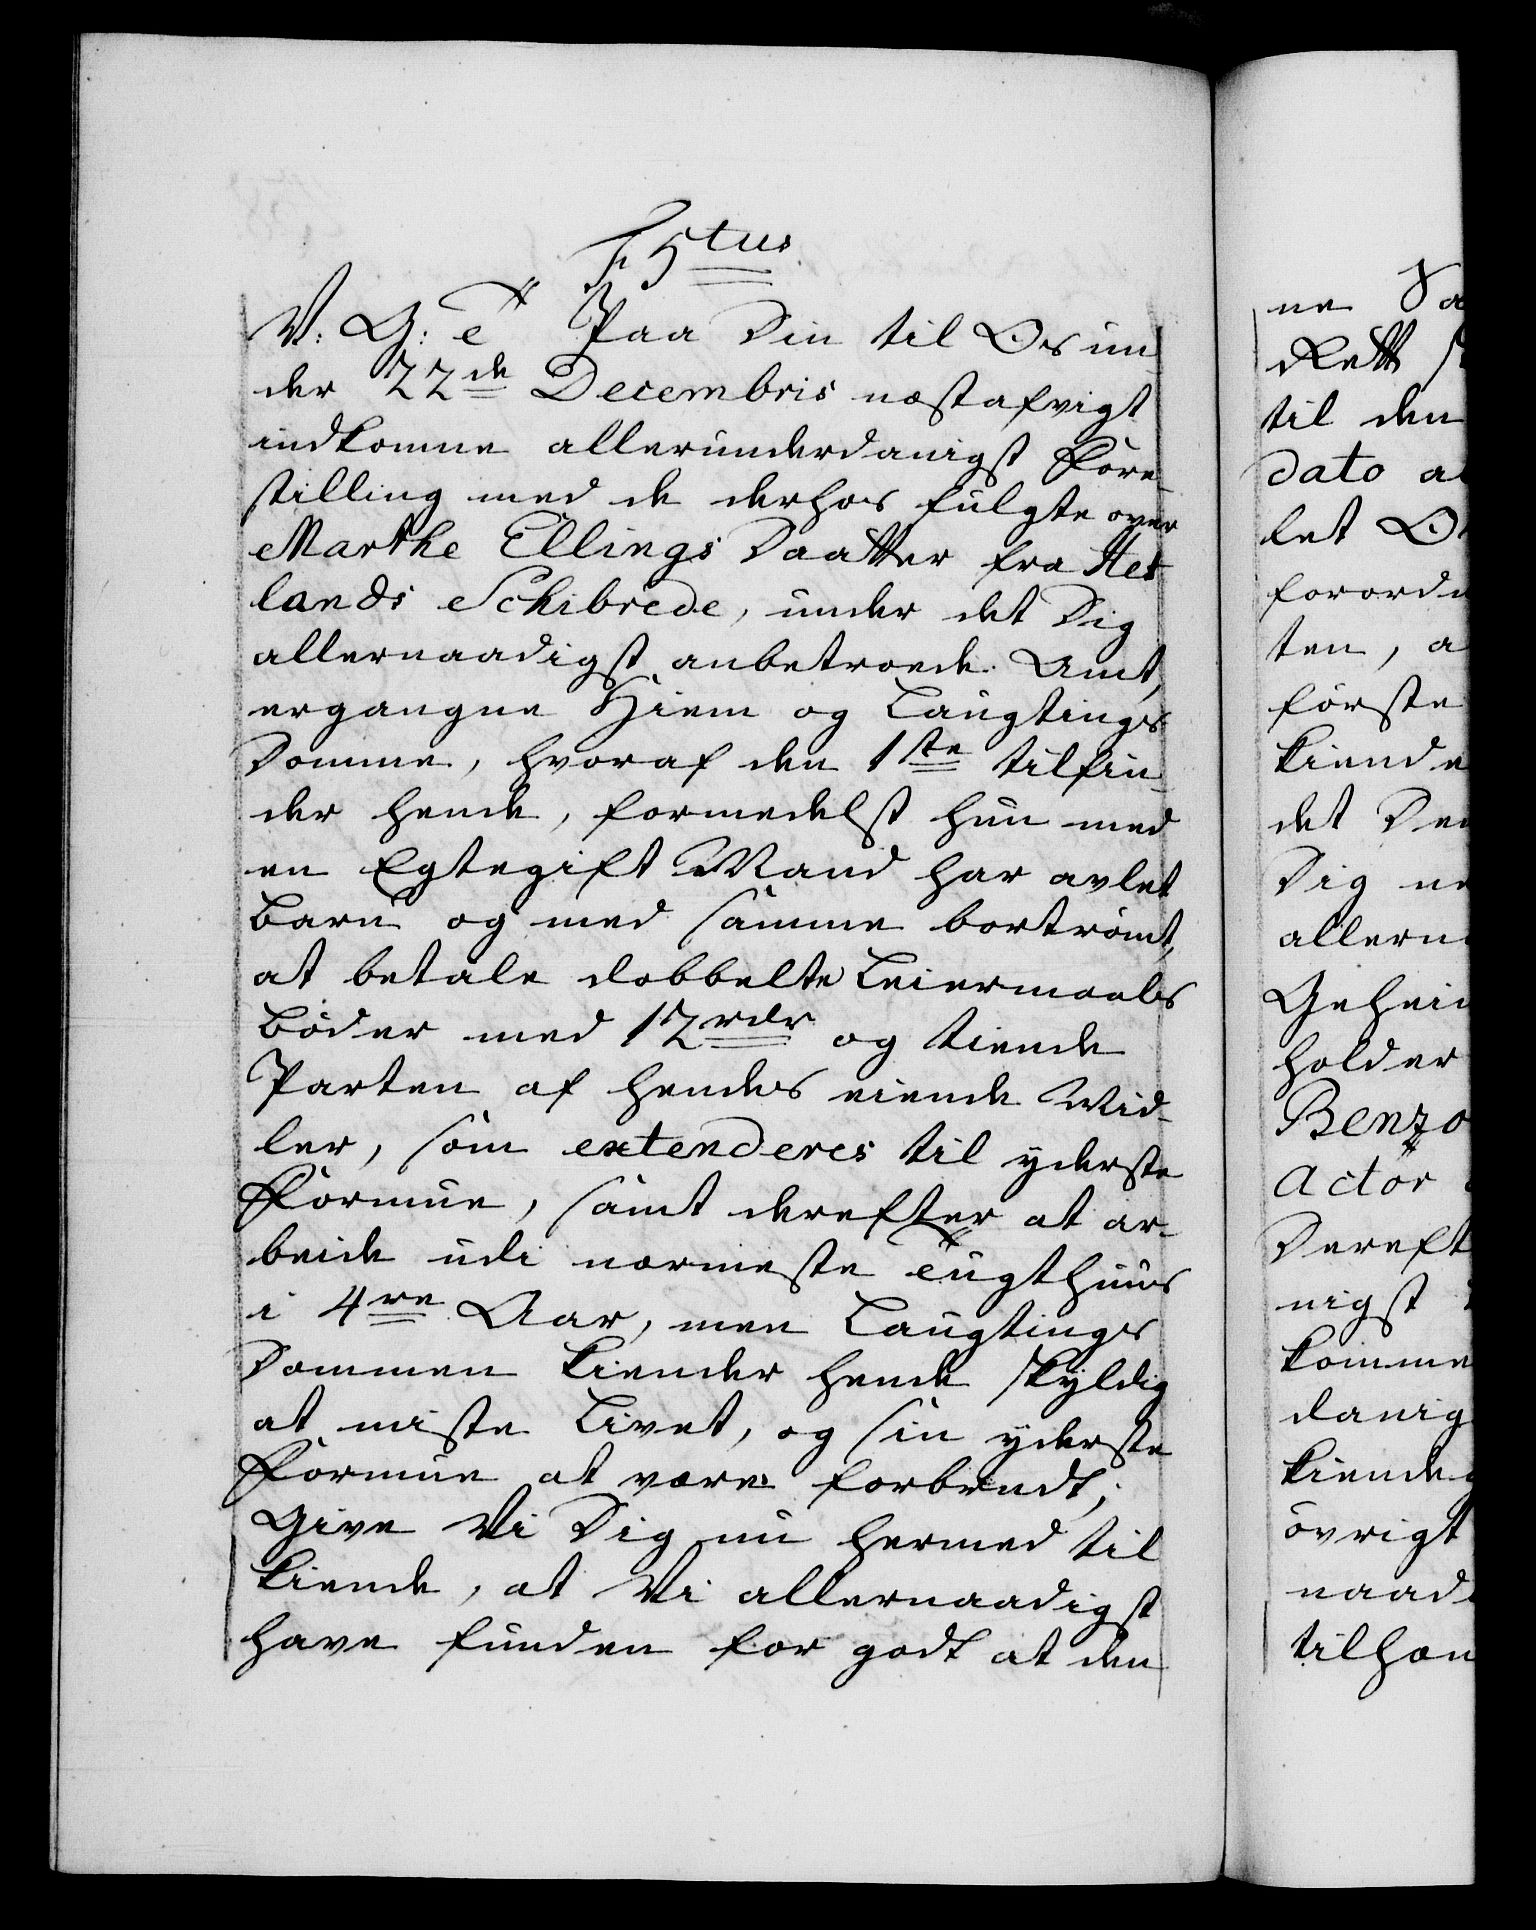 F 5tus
V: G: e Paa Din til Os un
der 22de Decembris næstafvigt
indkomne allerunderdanigst Fore
stilling med de derhos fulgte over
Marthe Ellings Daatter fra Het
lands Schibrede, under det Dig
allernaadigst anbetroede Amt,
ergangne Hiem og Laugtings
Domme, hvoraf den 1ste tilfin
der hende, formedelst hun med
en Egtegift Mand har avlet
Barn og med samme bortrömt,
at betale dobbelte Leiermaals
böder med 12 rdlr og tiende
Parten af hendes eiende Mid-
ler, som extenderes til yderste
Formue, samt derefter at ar-
beide udi nærmeste Tugthuus
i 4re Aar, men Laugtings
Dommen kiender hende skyldig
at miste Livet, og sin yderste
Formue at være forbrudt;
Give Vi Dig nu hermed til
kiende, at Vi allernaadigst
have funden for godt at den
ne Sa
Rett
til den
dato a
let
forord
ten, a
første
kiende
det Den
Dig
allern
Geheim
holder
Benzo
Actor
Dereft
nigst
komme
danig
kiende
övrigt
naad
tilhon